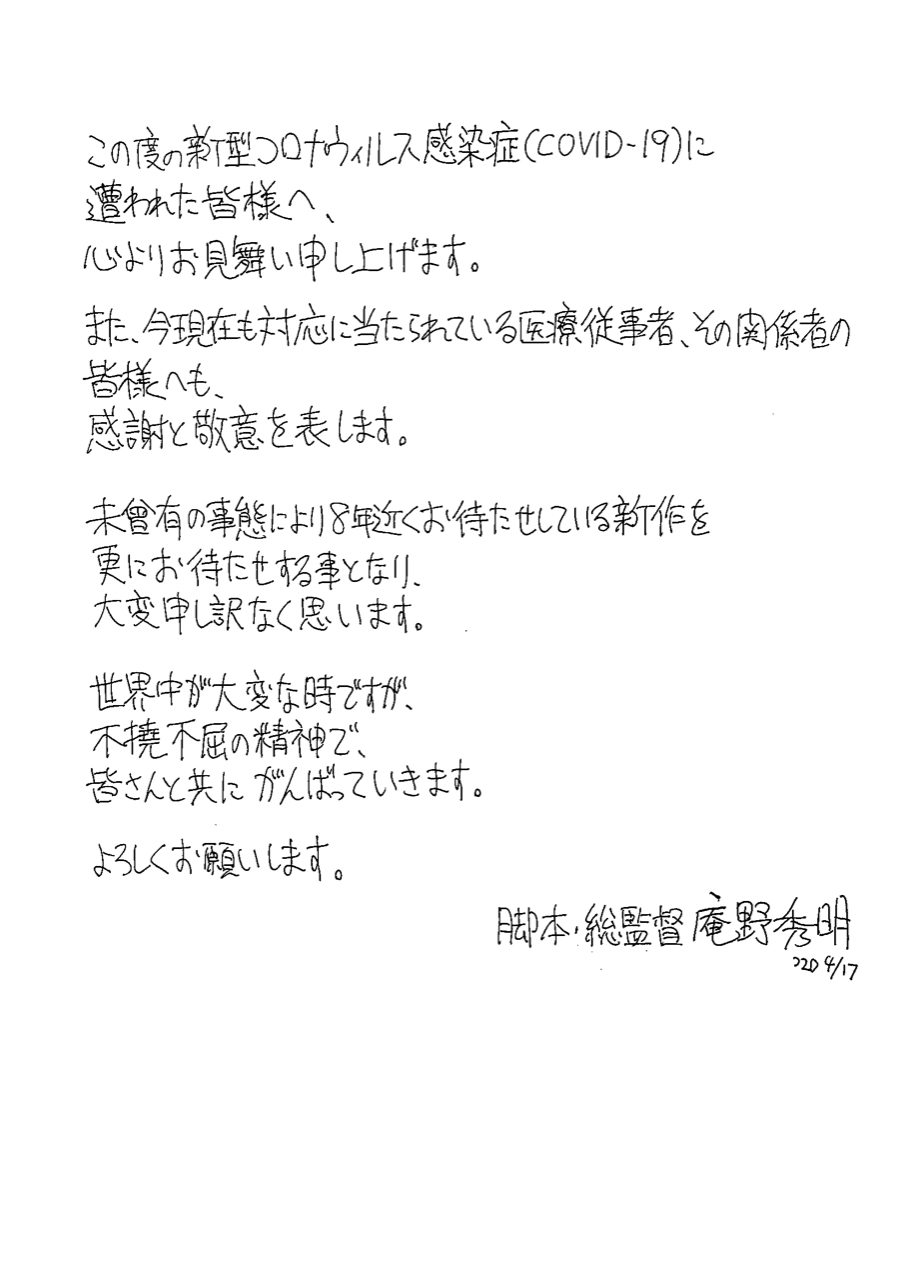 この度の新型コロナウィルス感染症(COVID-19)に
遭われた皆様へ、
心よりお見舞い申し上げます。
また、今現在も対応に当たられている医療従事者、その関係者の
皆様へも、
感謝と敬意を表します。
未曾有の事態により8年近くお待たせしている新作を
更にお待たせする事となり、
大変申し訳なく思います。
世界中が大変な時ですが、
不撓不屈の精神で、
皆さんと共にがんばっていきます。
よろしくお願いします。
脚本・総監督 庵野秀明
'20 4/17